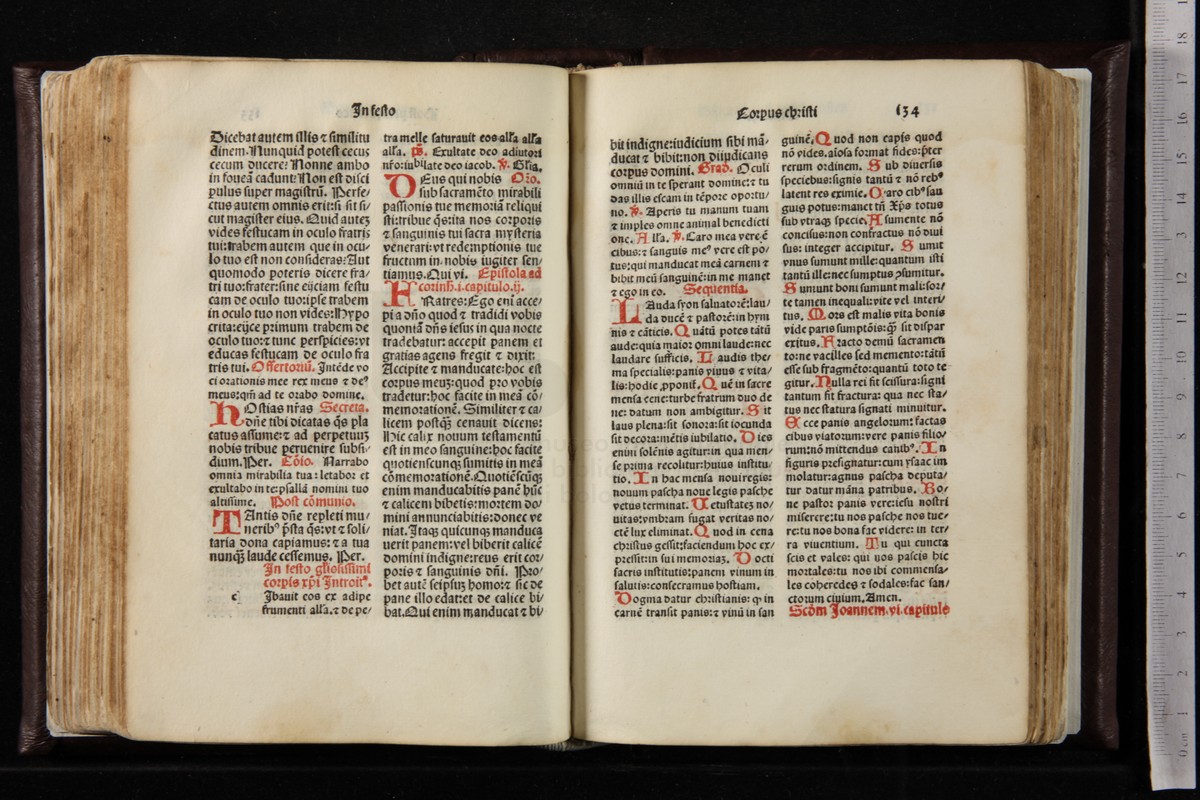 In festo
Dicebat autem illis ⁊ similitu
dinem. Nunquid potest cecus
cecum ducere? Nonne ambo
in foueā cadunt? Non est disci
pulus super magistrū. Perfe/
ctus autem omnis erit: si sit si/
cut magister eius. Quid autez
vides festucam in oculo fratris
tui: trabem autem que in ocu/
lo tuo est non consideras? Aut
quomodo poteris dicere fra/
tri tuo: frater: sine eijciam festu
cam de oculo tuo: ipse trabem
in oculo tuo non vides? Hypo
crita: eijce primum trabem de
oculo tuo: ⁊ tunc perspicies: vt
educas festucam de oculo fra
tris tui. Offertoriū. Intēde vo
ci orationis mee rex meus ⁊ deꝰ
meus: qm̄ ad te orabo domine.
HOstias nr̄as Secreta.
dn̄e tibi dicatas q̄s pla
catus assume: ⁊ ad perpetuuz
nobis tribue peruenire subsi/
dium. Per. Cōio. Narrabo
omnia mirabilia tua: letabor et
exultabo in te: psallā nomini tuo
altissime. Post cōmunio.
TAntis dn̄e repleti mu/
neribꝰ p̄sta q̄s: vt ⁊ salu
taria dona capiamus: ⁊ a tua
nunq̄ laude cessemus. Per.
In festo gl̄iosissimi
corpīs xp̄i Introitꝰ.
c Ibauit eos ex adipe
frumenti all'a. ⁊ de pe/
tra melle saturauit eos all'a all'a
all'a. ps̄. Exultate deo adiutori
nr̄o: iubilate deo iacob. ℣. Gl̄ia.
DEus qui nobis Oro.
sub sacramēto mirabili
passionis tue memoriā reliqui
sti: tribue q̄s: ita nos corporis
⁊ sanguinis tui sacra mysteria
venerari: vt redemptionis tue
fructum in nobis iugiter sen/
tiamus. Qui vi. Epistola ad
corinth. i. capitulo. ij.
FRatres: Ego em̄ acce/
pi a dn̄o quod ⁊ tradidi vobis
quoniā dn̄s iesus in qua nocte
tradebatur: accepit panem et
gratias agens fregit ⁊ dixit:
Accipite ⁊ manducate: hoc est
corpus meuz: quod pro vobis
tradetur: hoc facite in meā cō/
memorationē. Similiter ⁊ ca/
licem postq̄ cenauit dicens:
Hic calix nouum testamentū
est in meo sanguine: hoc facite
quotienscunq̄ sumitis in meā
cōmemorationē. Quotiēscūq̄
enim manducabitis panē hūc
⁊ calicem bibetis: mortem do/
mini annunciabitis: donec ve
niat. Itaq̄ quicunq̄ manduca
uerit panem: vel biberit calicē
domini indigne: reus erit cor/
poris ⁊ sanguinis dn̄i. Pro/
bet autē seipsuz homo: ⁊ sic de
pane illo edat: et de calice bi
bat. Qui enim manducat ⁊ bi/
Corpus christi 134
bit indigne: iudicium sibi mā/
ducat ⁊ bibit: non diiudicans
corpus domini. Grad. Oculi
omniū in te sperant domine: ⁊ tu
das illis escam in tēpore oportu/
no. ℣. Aperis tu manum tuam
⁊ imples omne animal benedicti
one. All'a. ℣. Caro mea vere ē
cibus: ⁊ sanguis meꝰ vere est po/
tus: qui manducat meā carnem ⁊
bibit meū sanguinē: in me manet
⁊ ego in eo. Sequentia.
LAuda syon saluatorē: lau/
da ducē ⁊ pastorē: in hym
nis ⁊ cāticis. Quātū potes tātū
aude: quia maior omni laude: nec
laudare sufficis. Laudis the/
ma specialis: panis viuus ⁊ vita/
lis: hodie p̄ponit̄. Quē in sacre
mensa cene: turbe fratrum duo de
ne: datum non ambigitur. Sit
laus plena: sit sonora: sit iocunda
sit decora: mētis iubilatio. Dies
enim solēnis agitur: in qua men/
se prima recolitur: huius institu/
tio. In hac mensa noui regis:
nouum pascha noue legis pasche
vetus terminat. Uetustatez no/
uitas: vmbram fugat veritas no/
ctē lux eliminat. Quod in cena
christus gessit: faciendum hoc ex/
pressit: in sui memoriaz. Docti
sacris institutis: panem vinum in
salutis: consecramus hostiam.
Dogma datur christianis: q̄ in
carnē transit panis: ⁊ vinū in san
guinē. Quod non capis quod
nō vides. aīosa format fides: p̄ter
rerum ordinem. Sub diuersis
speciebus: signis tantū ⁊ nō rebꝰ
latent res eximie. Caro cibꝰ san
guis potus: manet tn̄ Xp̄s totus
sub vtraq̄ specie. A sumente nō
concisus: non confractus nō diui
sus: integer accipitur. Sumit
vnus sumunt mille: quantum isti
tantū ille: nec sumptus p̄sumitur.
Sumunt boni sumunt mali: sor/
te tamen inequali: vite vel interi/
tus. Mors est malis vita bonis
vide paris sumptōis: q̄ sit dispar
exitus. Fracto demū sacramen
to: ne vacilles sed memento: tātū
esse sub fragmēto: quantū toto te
gitur. Nulla rei fit scissura: signi
tantum fit fractura: qua nec sta/
tus nec statura signati minuitur.
Ecce panis angelorum: factas
cibus viatorum: vere panis filio/
rum: nō mittendus canibꝰ. In
figuris presignatur: cum ysaac im
molatur: agnus pascha deputa/
tur datur māna patribus. Bo/
ne pastor panis vere: iesu nostri
miserere: tu nos pasche nos tue/
re: tu nos bona fac videre: in ter/
ra viuentium. Tu qui cuncta
scis et vales: qui nos pascis hic
mortales: tu nos ibi commensa/
les coheredes ⁊ sodales: fac san/
ctorum ciuium. Amen.
Scd̄m Joannem. vi. capitulo